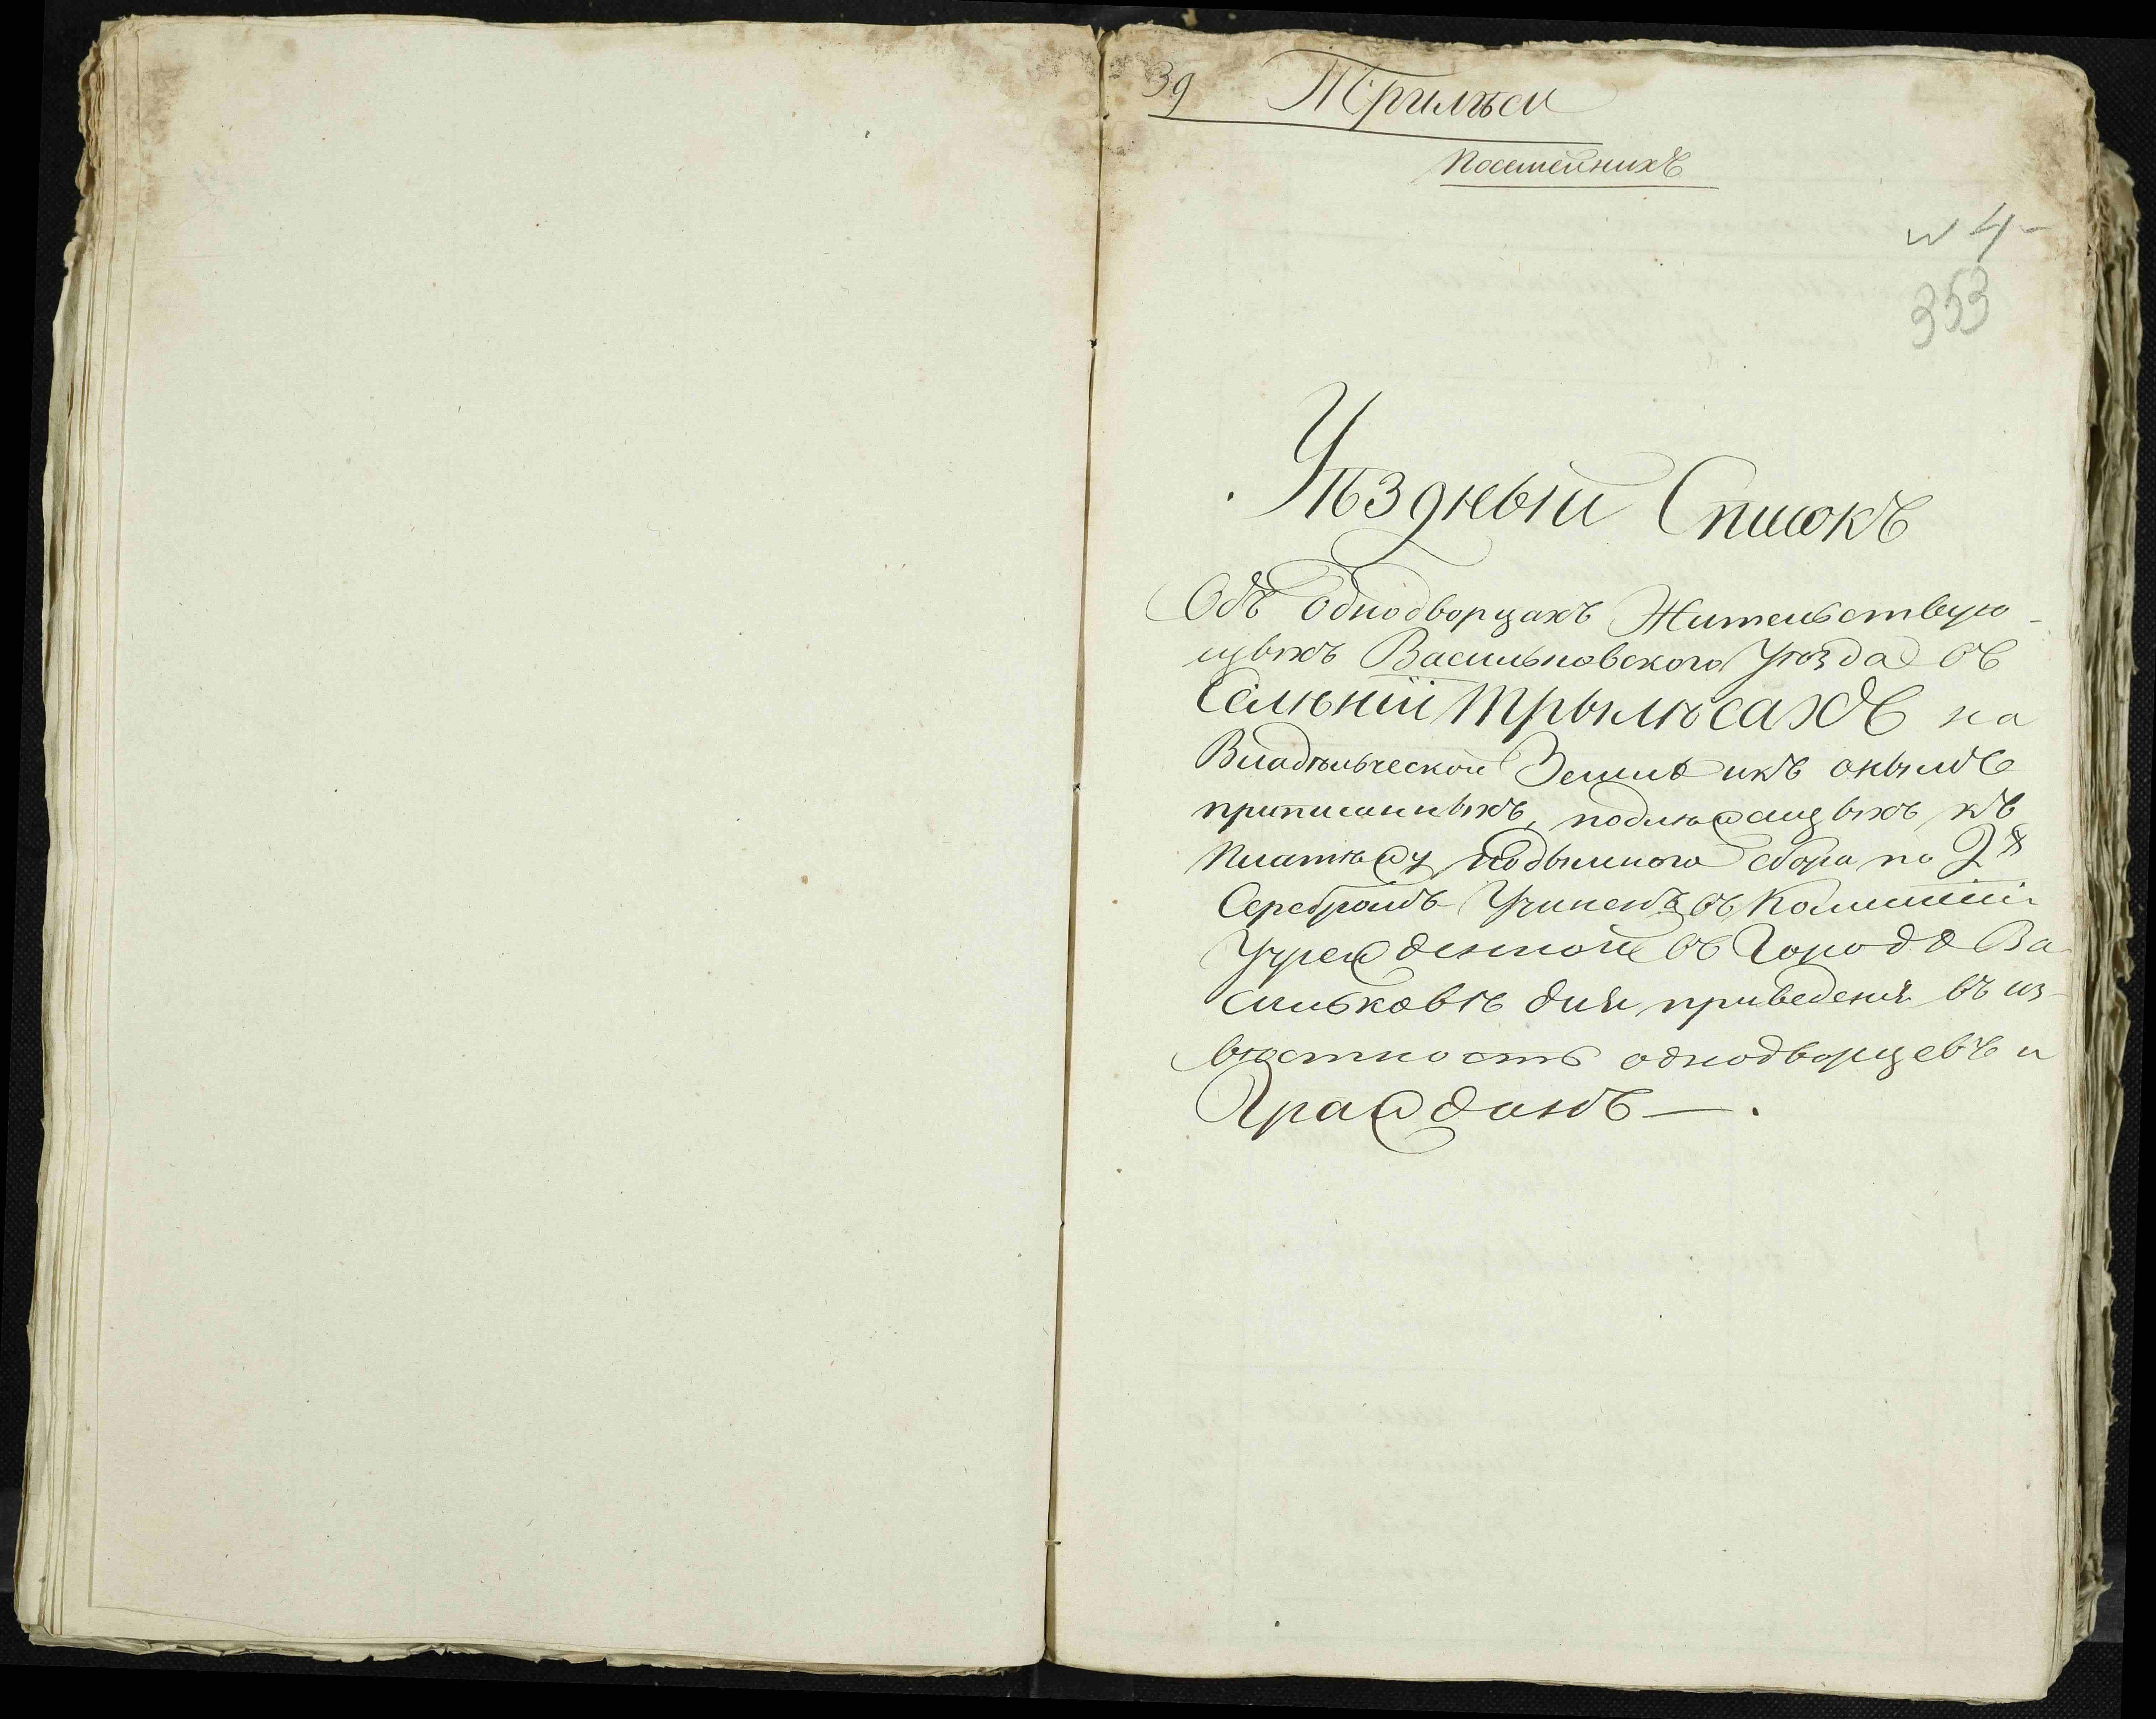 39 Трилѣси
Посемейникъ
N 4-
353
Уѣздный Списокъ
Объ Однодворцахъ Жительствую-
щыхъ Васильковского Уѣзда въ
Селѣніи Трылѣсахъ на
Владѣльческой Землѣ икъ онымъ
приписанныхъ, подлѣжащыхъ къ
Платѣжу подымного сбора по 2
Серебромъ Учиненъ въ Коммиссіи
Учрежденной въ Городѣ Ва
сильковѣ для приведенія въ из-
вѣстность однодворцевъ и
Гражданъ —.